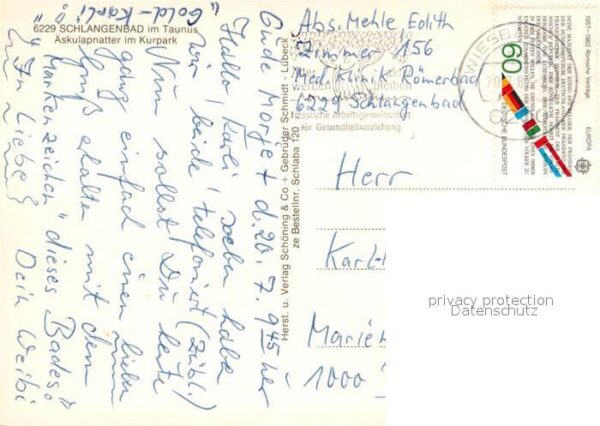 6229 SCHLANGENBAD im Taunus
Äskulapnatter im Kurpark
"Gold-Karli"
Guten Morgen d. 20. 7. 9 45 Uhr
Hallo Karli! soeben habe
wir beide telefoniert (Zubl.)
Nun sollst Du heute
ganz einfach einen lieben
Gruß erhalten mit dem
"Markenzeichen" dieses Bades.
In Liebe! Dein Weibi
Herst. u. Verlag Schöning & Co + Gebrüder Schmidt - Lübeck
ze Bestellnr. Schlaba 120
Abs. Mehle Edith
Zimmer 156
Med. Klinik Römerbad
6229 Schlangenbad
werden bleiben
Hessische Arbeitsgemeinschaft
für Gesundheitserziehung
WIESBA
60
DEUTSCHE BUNDESPOST
1957-1982 Römische Verträge
EUROPA
Herr
Karl-
Marien
1000
privacy protection
Datenschutz